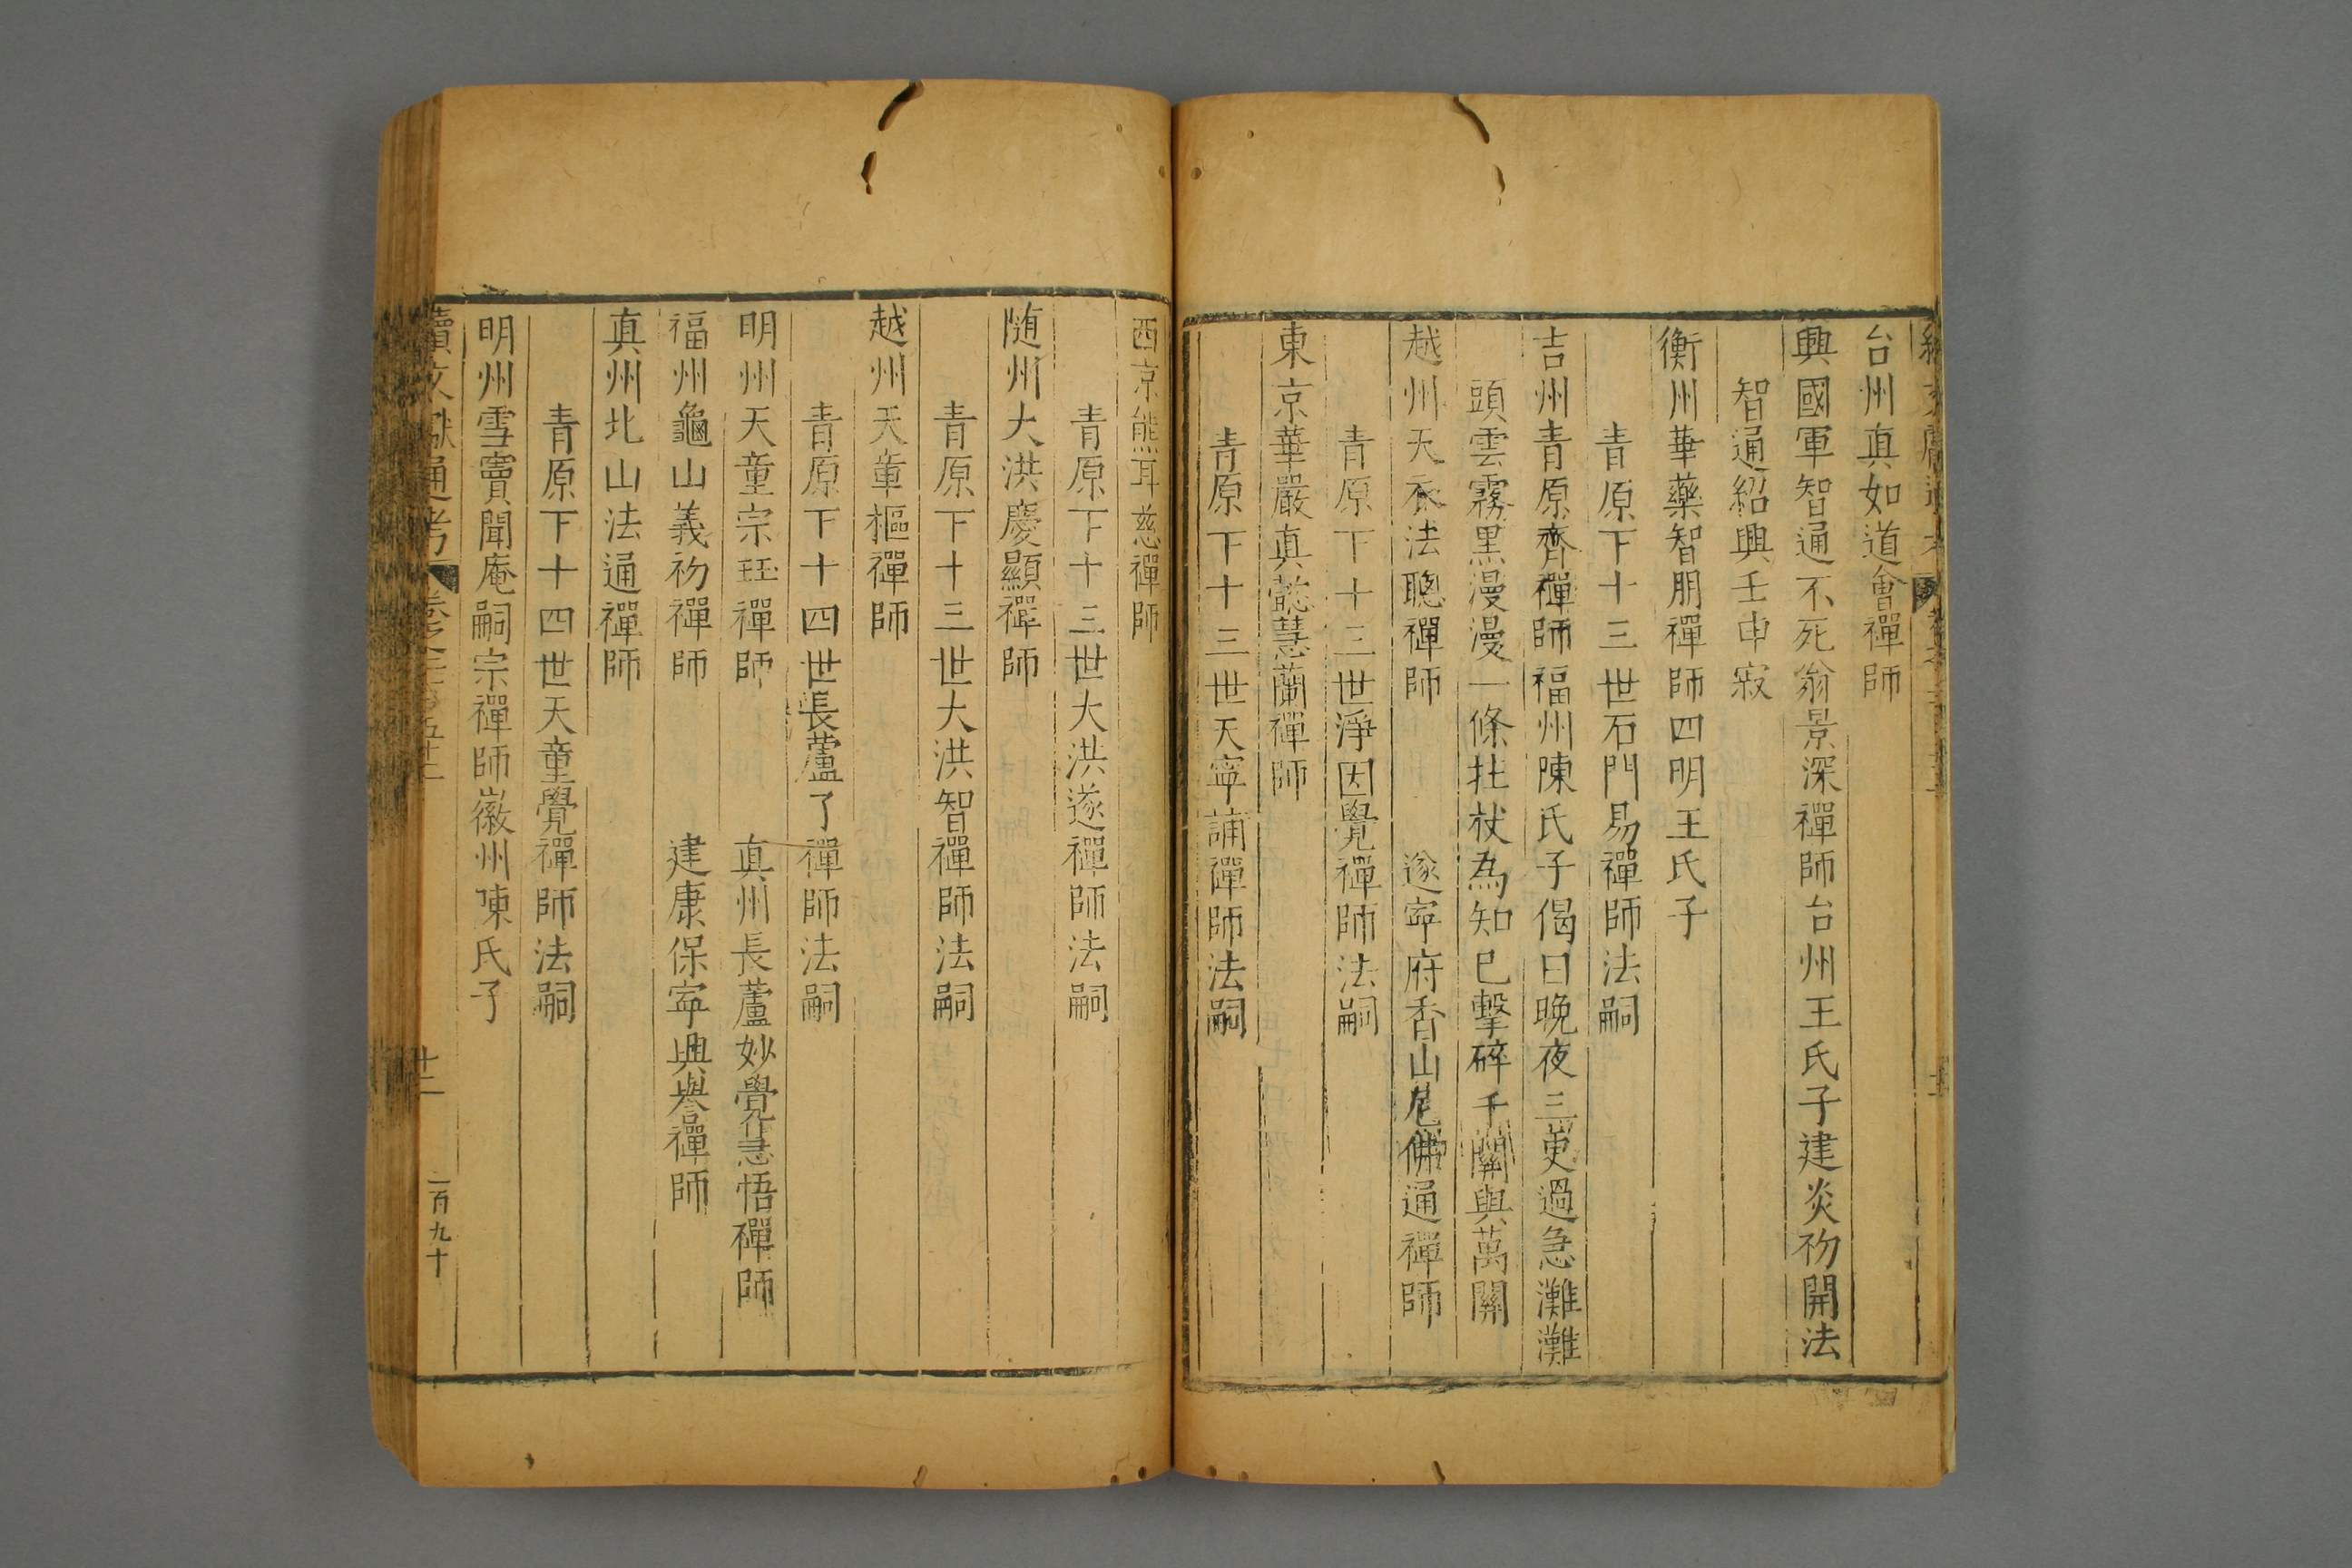 台州真如道會禪師
興國軍智通不死翁景深禪師台州王氏子建炎初開法
智通紹興壬申寂
衡州華藥智朋禪師四明王氏子
青原下十三世石門易禪師法嗣
吉州青原齊禪師福州陳氏子偈曰晚夜三更過急灘灘
頭雲霧黑漫漫一條拄杖為知已擊碎千關與萬關
越州天衣法聰禪師 遂寧府香山尼佛通禪師
青原下十三世淨因覺禪師法嗣
東京華嚴真懿慧蘭禪師
青原下十三世天寧誧禪師法嗣
西京熊耳慈禪師
青原下十三世大洪遂禪師法嗣
随州大洪慶顯禪師
青原下十三世大洪智禪師法嗣
越州天章樞禪師
青原下十四世長蘆了禪師法嗣
明州天童宗珏禪師 真州長蘆妙覺慧悟禪師
福州龜山義初禪師 建康保寧興譽禪師
真州北山法通禪師
青原下十四世天童覺禪師法嗣
明州雪竇聞庵嗣宗禪師徽州陳氏子
續文獻通考 卷之二百五十二 廿二 一百九十